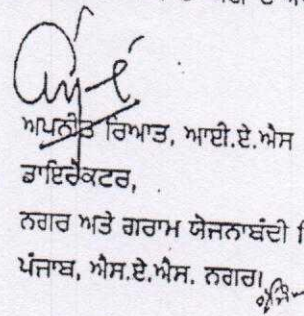 ਅਪਨੀਤ ਰਿਆਤ, ਆਈ.ਏ.ਐਸ
ਡਾਇਰੈਕਟਰ,
ਨਗਰ ਅਤੇ ਗਰਾਮ ਯੋਜਨਾਬੰਦੀ
ਪੰਜਾਬ, ਐਸ.ਏ.ਐਸ. ਨਗਰ।